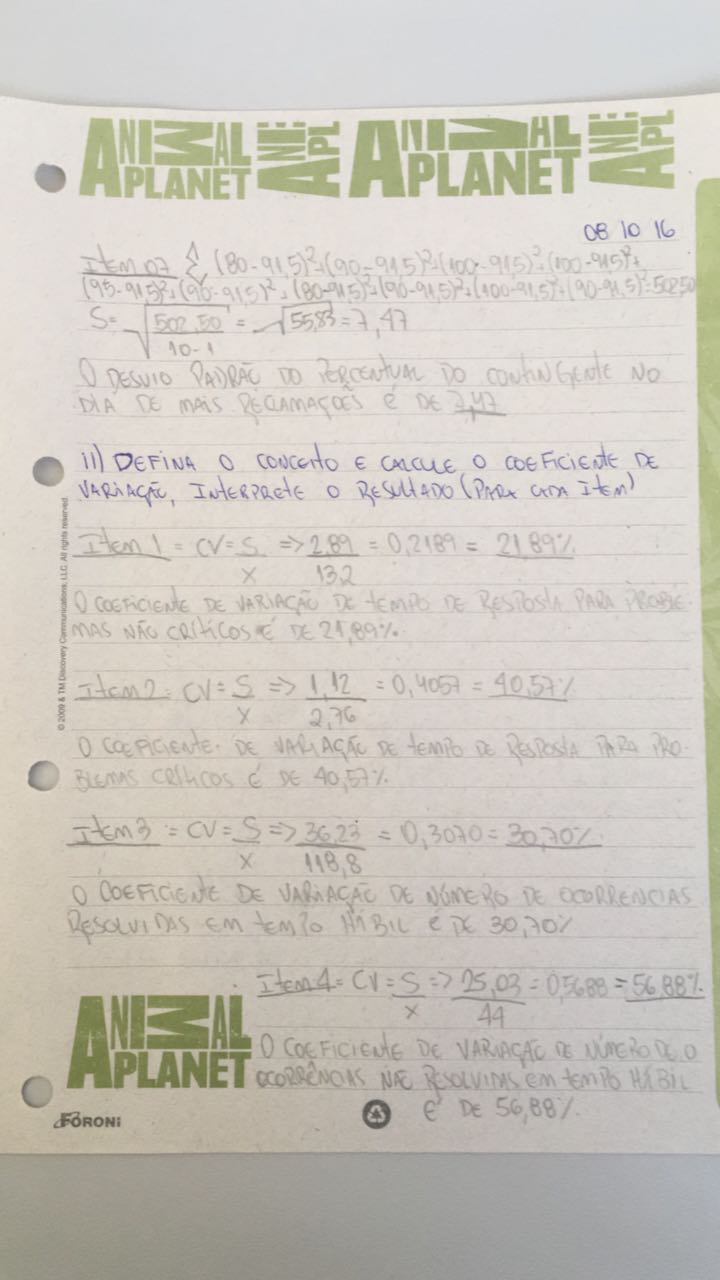 ANIMAL PLANET ANIMAL PLANET
08 10 16
Item 07 Σ (80-91,5)²+(90-91,5)²+(100-91,5)²+(100-91,5)²+
(95-91,5)²+(90-91,5)²+(80-91,5)²+(90-91,5)²+(100-91,5)²+(90-91,5)²=502,50
S= √502,50/10-1 = √55,83 = 7,47
O DESVIO PADRÃO DO PERCENTUAL DO CONTINGENTE NO
DIA DE MAIS RECLAMAÇÕES É DE 7,47
11) DEFINA O CONCEITO E CALCULE O COEFICIENTE DE
VARIAÇÃO, INTERPRETE O RESULTADO (PARA CADA ITEM)
Item 1 = CV = S/X => 2,89/13,2 = 0,2189 = 21,89%
O COEFICIENTE DE VARIAÇÃO DE TEMPO DE RESPOSTA PARA PROBLE-
MAS NÃO CRÍTICOS É DE 21,89%.
Item 2 = CV = S/X => 1,12/2,76 = 0,4057 = 40,57%
O COEFICIENTE DE VARIAÇÃO DE TEMPO DE RESPOSTA PARA PRO-
BLEMAS CRÍTICOS É DE 40,57%
Item 3 = CV = S/X => 36,23/118,8 = 0,3070 = 30,70%
O COEFICIENTE DE VARIAÇÃO DE NÚMERO DE OCORRENCIAS
RESOLVIDAS EM TEMPO HÁBIL É DE 30,70%
Item 4 = CV = S/X => 25,03/44 = 0,5688 = 56,88%
O COEFICIENTE DE VARIAÇÃO DE NÚMERO DE O
OCORRÊNCIAS NÃO RESOLVIDAS EM TEMPO HÁBIL
É DE 56,88%
ANIMAL PLANET
FORONI
© 2009 & TM Discovery Communications, LLC. All rights reserved.